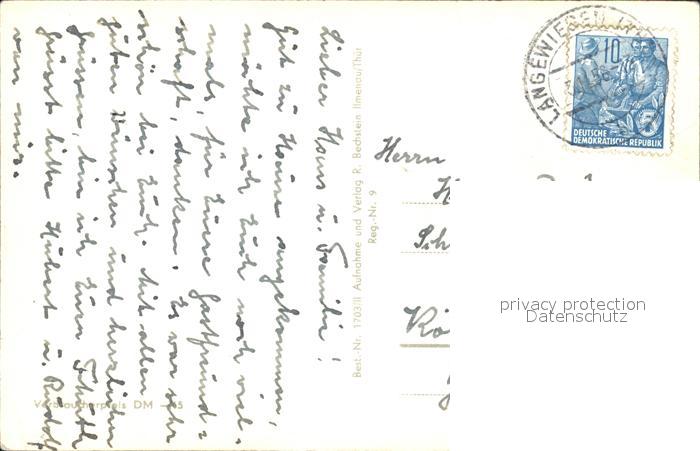 Lieber Hans u. Familie!
Gut zu Hause angekommen,
möchte ich Euch noch viel-
mals, für Eure Gastfreund-
schaft, danken. Es war sehr
schön bei Euch. Mit allen
guten Wünschen und herzlichen
Grüssen, bin ich Euer
Grüsst bitte Hubert u. Rudolf
von mir.
Verbraucherpreis DM
Best.-Nr. 1703/II Aufnahme und Verlag R. Bechstein Ilmenau/Thür
Reg.-Nr. 9
LANGEWIESEN
10
DEUTSCHE
DEMOKRATISCHE REPUBLIK
Herrn
privacy protection
Datenschutz